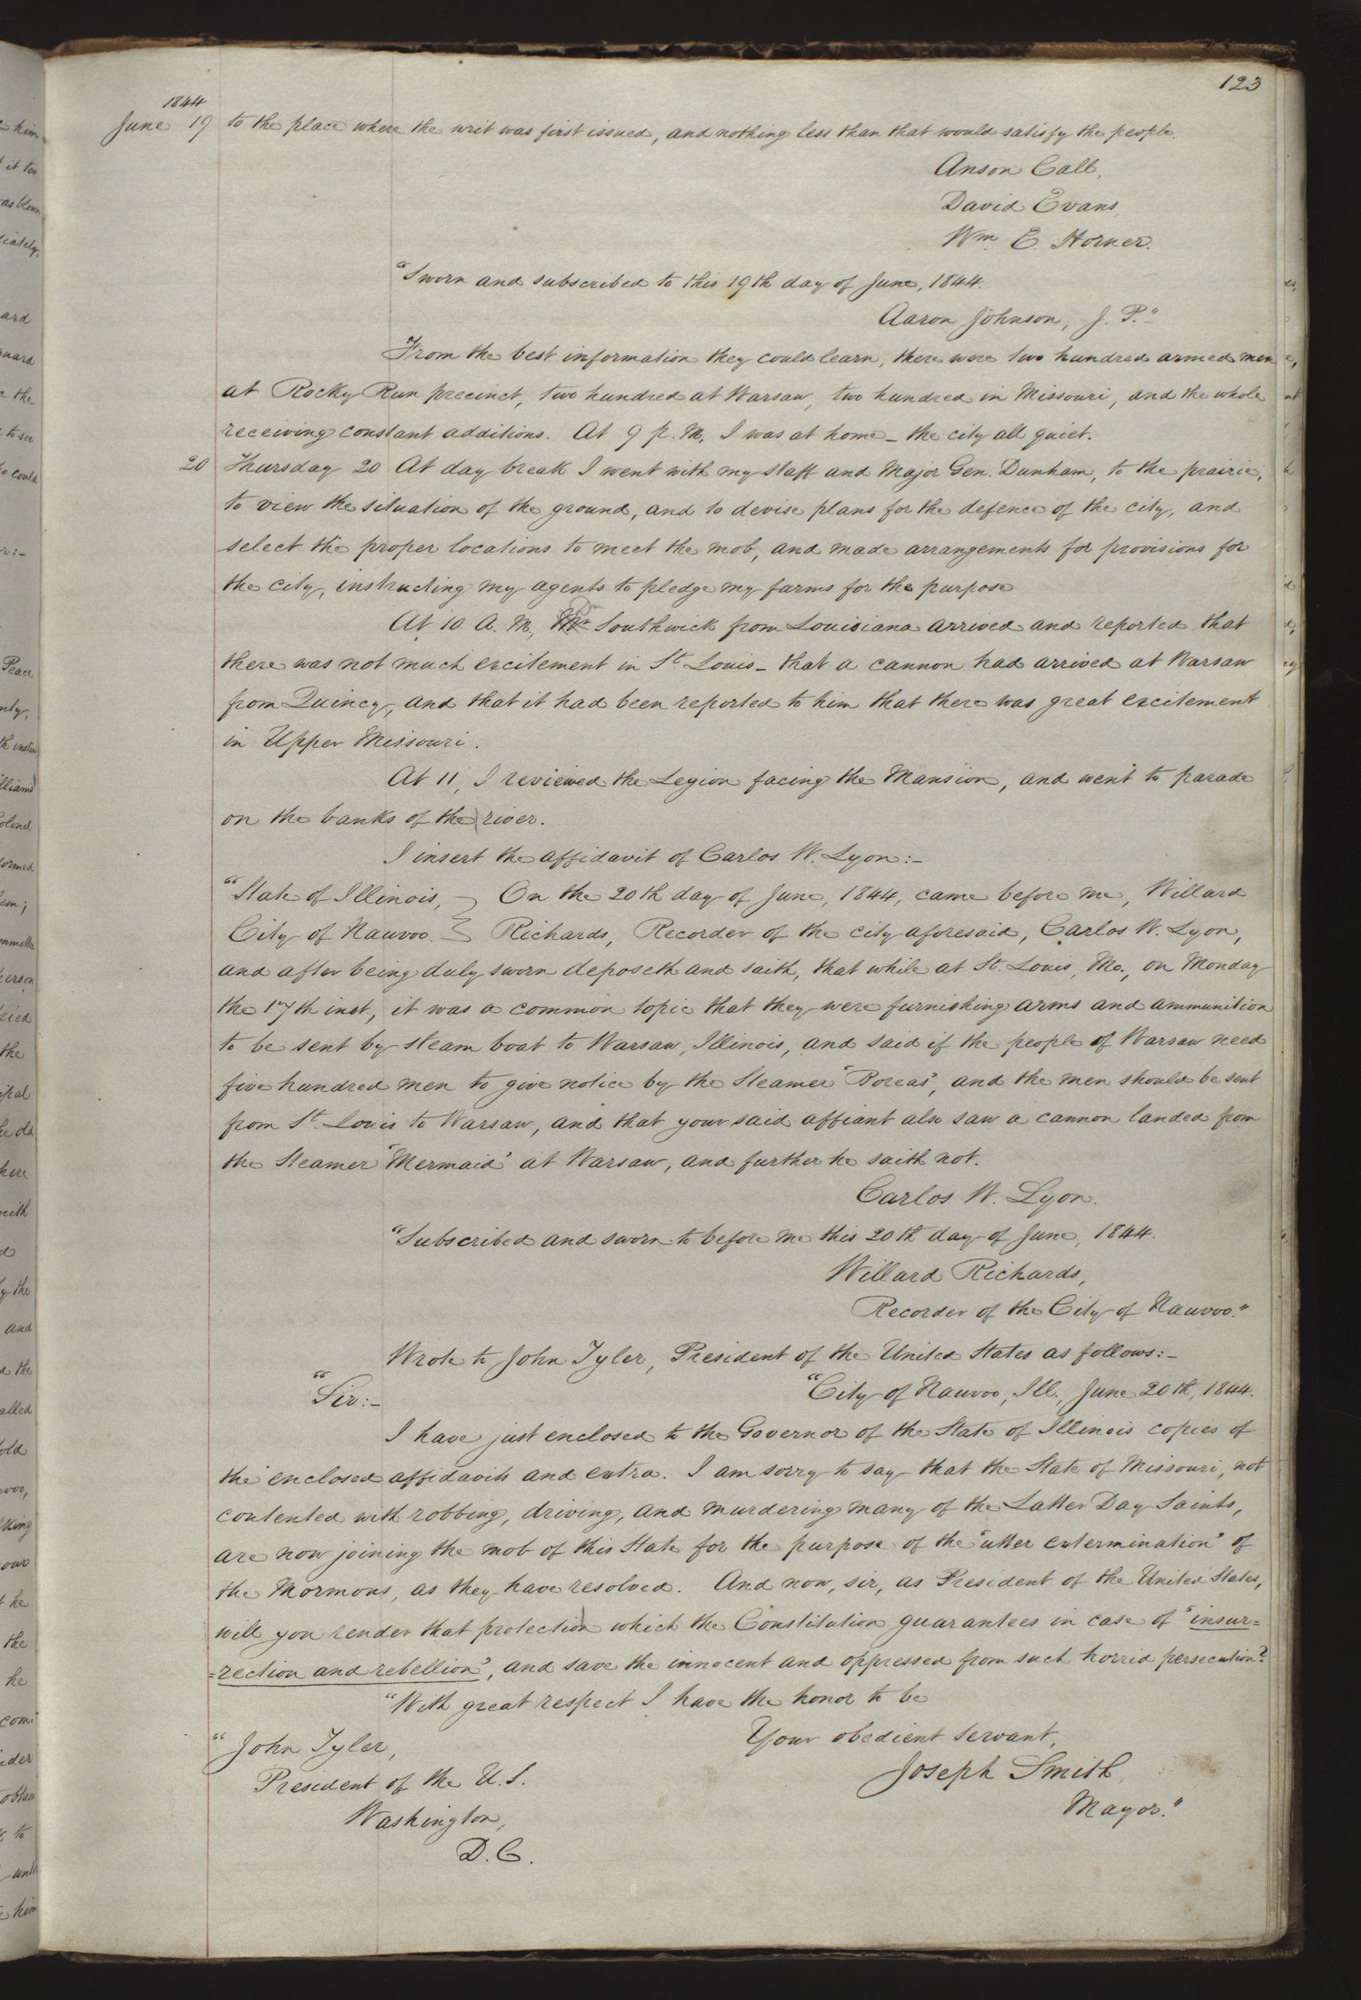 123
1844
June 19 to the place where the writ was first issued, and nothing less than that would satisfy the people.
Anson Call,
David Evans,
Wm. E. Horner.
"Sworn and subscribed to this 19th day of June, 1844.
Aaron Johnson, J. P."
From the best information they could learn, there were two hundred armed men
at Rocky Run precinct, two hundred at Warsaw, two hundred in Missouri, and the whole
receiving constant additions. At 9 p. M, I was at home_ the city all quiet.
20 Thursday 20 At day break I went with my staff and Major Gen. Dunham, to the prairie,
to view the situation of the ground, and to devise plans for the defence of the city, and
select the proper locations to meet the mob, and made arrangements for provisions for
the city, instructing my agents to pledge my farms for the purpose
At 10 A. M, Dr Southwick from Louisiana arrived and reported that
there was not much excitement in St. Louis_ that a cannon had arrived at Warsaw
from Quincy, and that it had been reported to him that there was great excitement
in Upper Missouri.
At 11, I reviewed the Legion facing the Mansion, and went to parade
on the banks of the river.
I insert the affidavit of Carlos W. Lyon:-
"State of Illinois, } On the 20th day of June, 1844, came before me, Willard
City of Nauvoo. } Richards, Recorder of the city aforesaid, Carlos W. Lyon,
and after being duly sworn deposeth and saith, that while at St. Louis, Mo., on Monday
the 17th inst, it was a common topic that they were furnishing arms and ammunition
to be sent by steam boat to Warsaw, Illinois, and said if the people of Warsaw need
five hundred men to give notice by the Steamer 'Boreas', and the men should be sent
from St. Louis to Warsaw, and that your said affiant also saw a cannon landed from
the Steamer 'Mermaid' at Warsaw, and further he saith not.
Carlos W. Lyon.
"Subscribed and sworn to before me this 20th day of June, 1844.
Willard Richards,
Recorder of the City of Nauvoo."
Wrote to John Tyler, President of the United States as follows:-
"City of Nauvoo, Ill., June 20th, 1844.
"Sir:-
I have just enclosed to the Governor of the State of Illinois copies of
the enclosed affidavits and extra. I am sorry to say that the State of Missouri, not
contented with robbing, driving, and murdering many of the Latter Day Saints,
are now joining the mob of this State for the purpose of the "utter extermination" of
the Mormons, as they have resolved. And now, sir, as President of the United States,
will you render that protection which the Constitution guarantees in case of 'insur=
=rection and rebellion', and save the innocent and oppressed from such horrid persecution?
"With great respect I have the honor to be
Your obedient servant,
"John Tyler,
Joseph Smith,
President of the U. S.
Mayor."
Washington,
D. C.